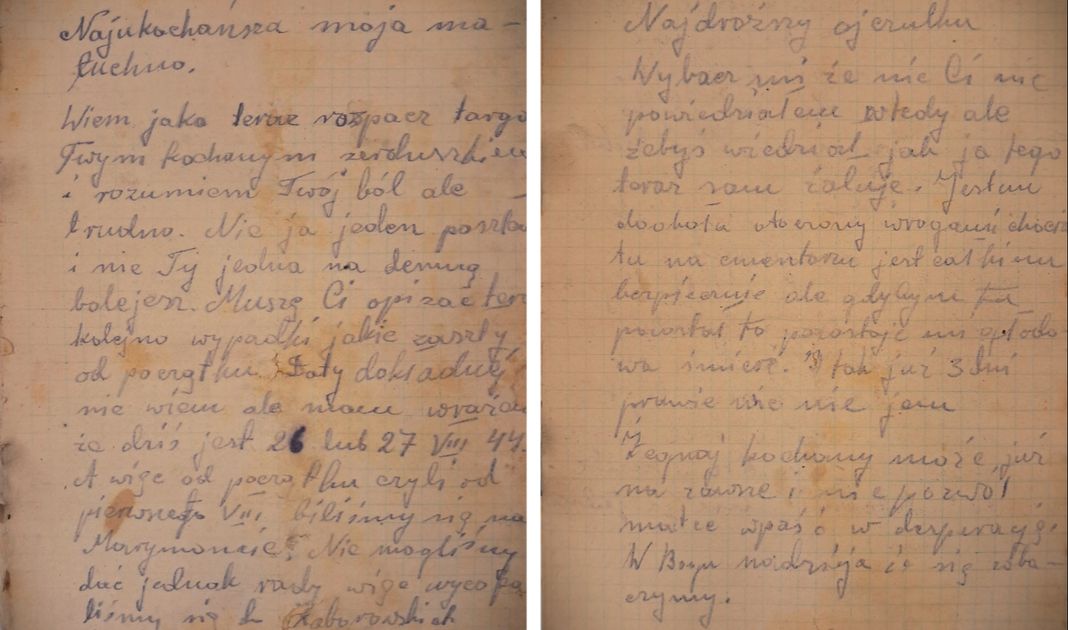 Najukochańsza moja ma-
tuchno.
Wiem jaka teraz rozpacz targa
Twym kochanym serduszkiem
i rozumiem Twój ból ale
trudno. Nie ja jeden poszła
i nie Ty jedna na demną
bolejesz. Muszę Ci opisać ter
kolejno wypadki jakie zaszły
od początku. Daty dokładnej
nie wiem ale mam wraże
że dziś jest 26 lub 27 VIII 44.
A więc od początku czyli od
pierwszego VIII biliśmy się na
Marymoncie. Nie mogliśmy
dać jednak rady więc wycofa
liśmy się k Zaborowskich
Najdroższy ojczulku
Wybacz mi że nie Ci nie
powiedziałem wtedy ale
żebyś wiedział jak ja tego
teraz sam żałuję. Jestem
dookoła otoczony wrogami chocia
tu na cmentarzu jest całkiem
bezpiecznie ale gdybym tu
pozostał to pozostaje mi głodo-
wa śmierć. I tak już 3 dni
prawie nic nie jem
Żegnaj kochany może już
na zawsze i nie pozwól
matce wpaść w desperację.
W Bogu nadzieja że się zoba-
czymy.